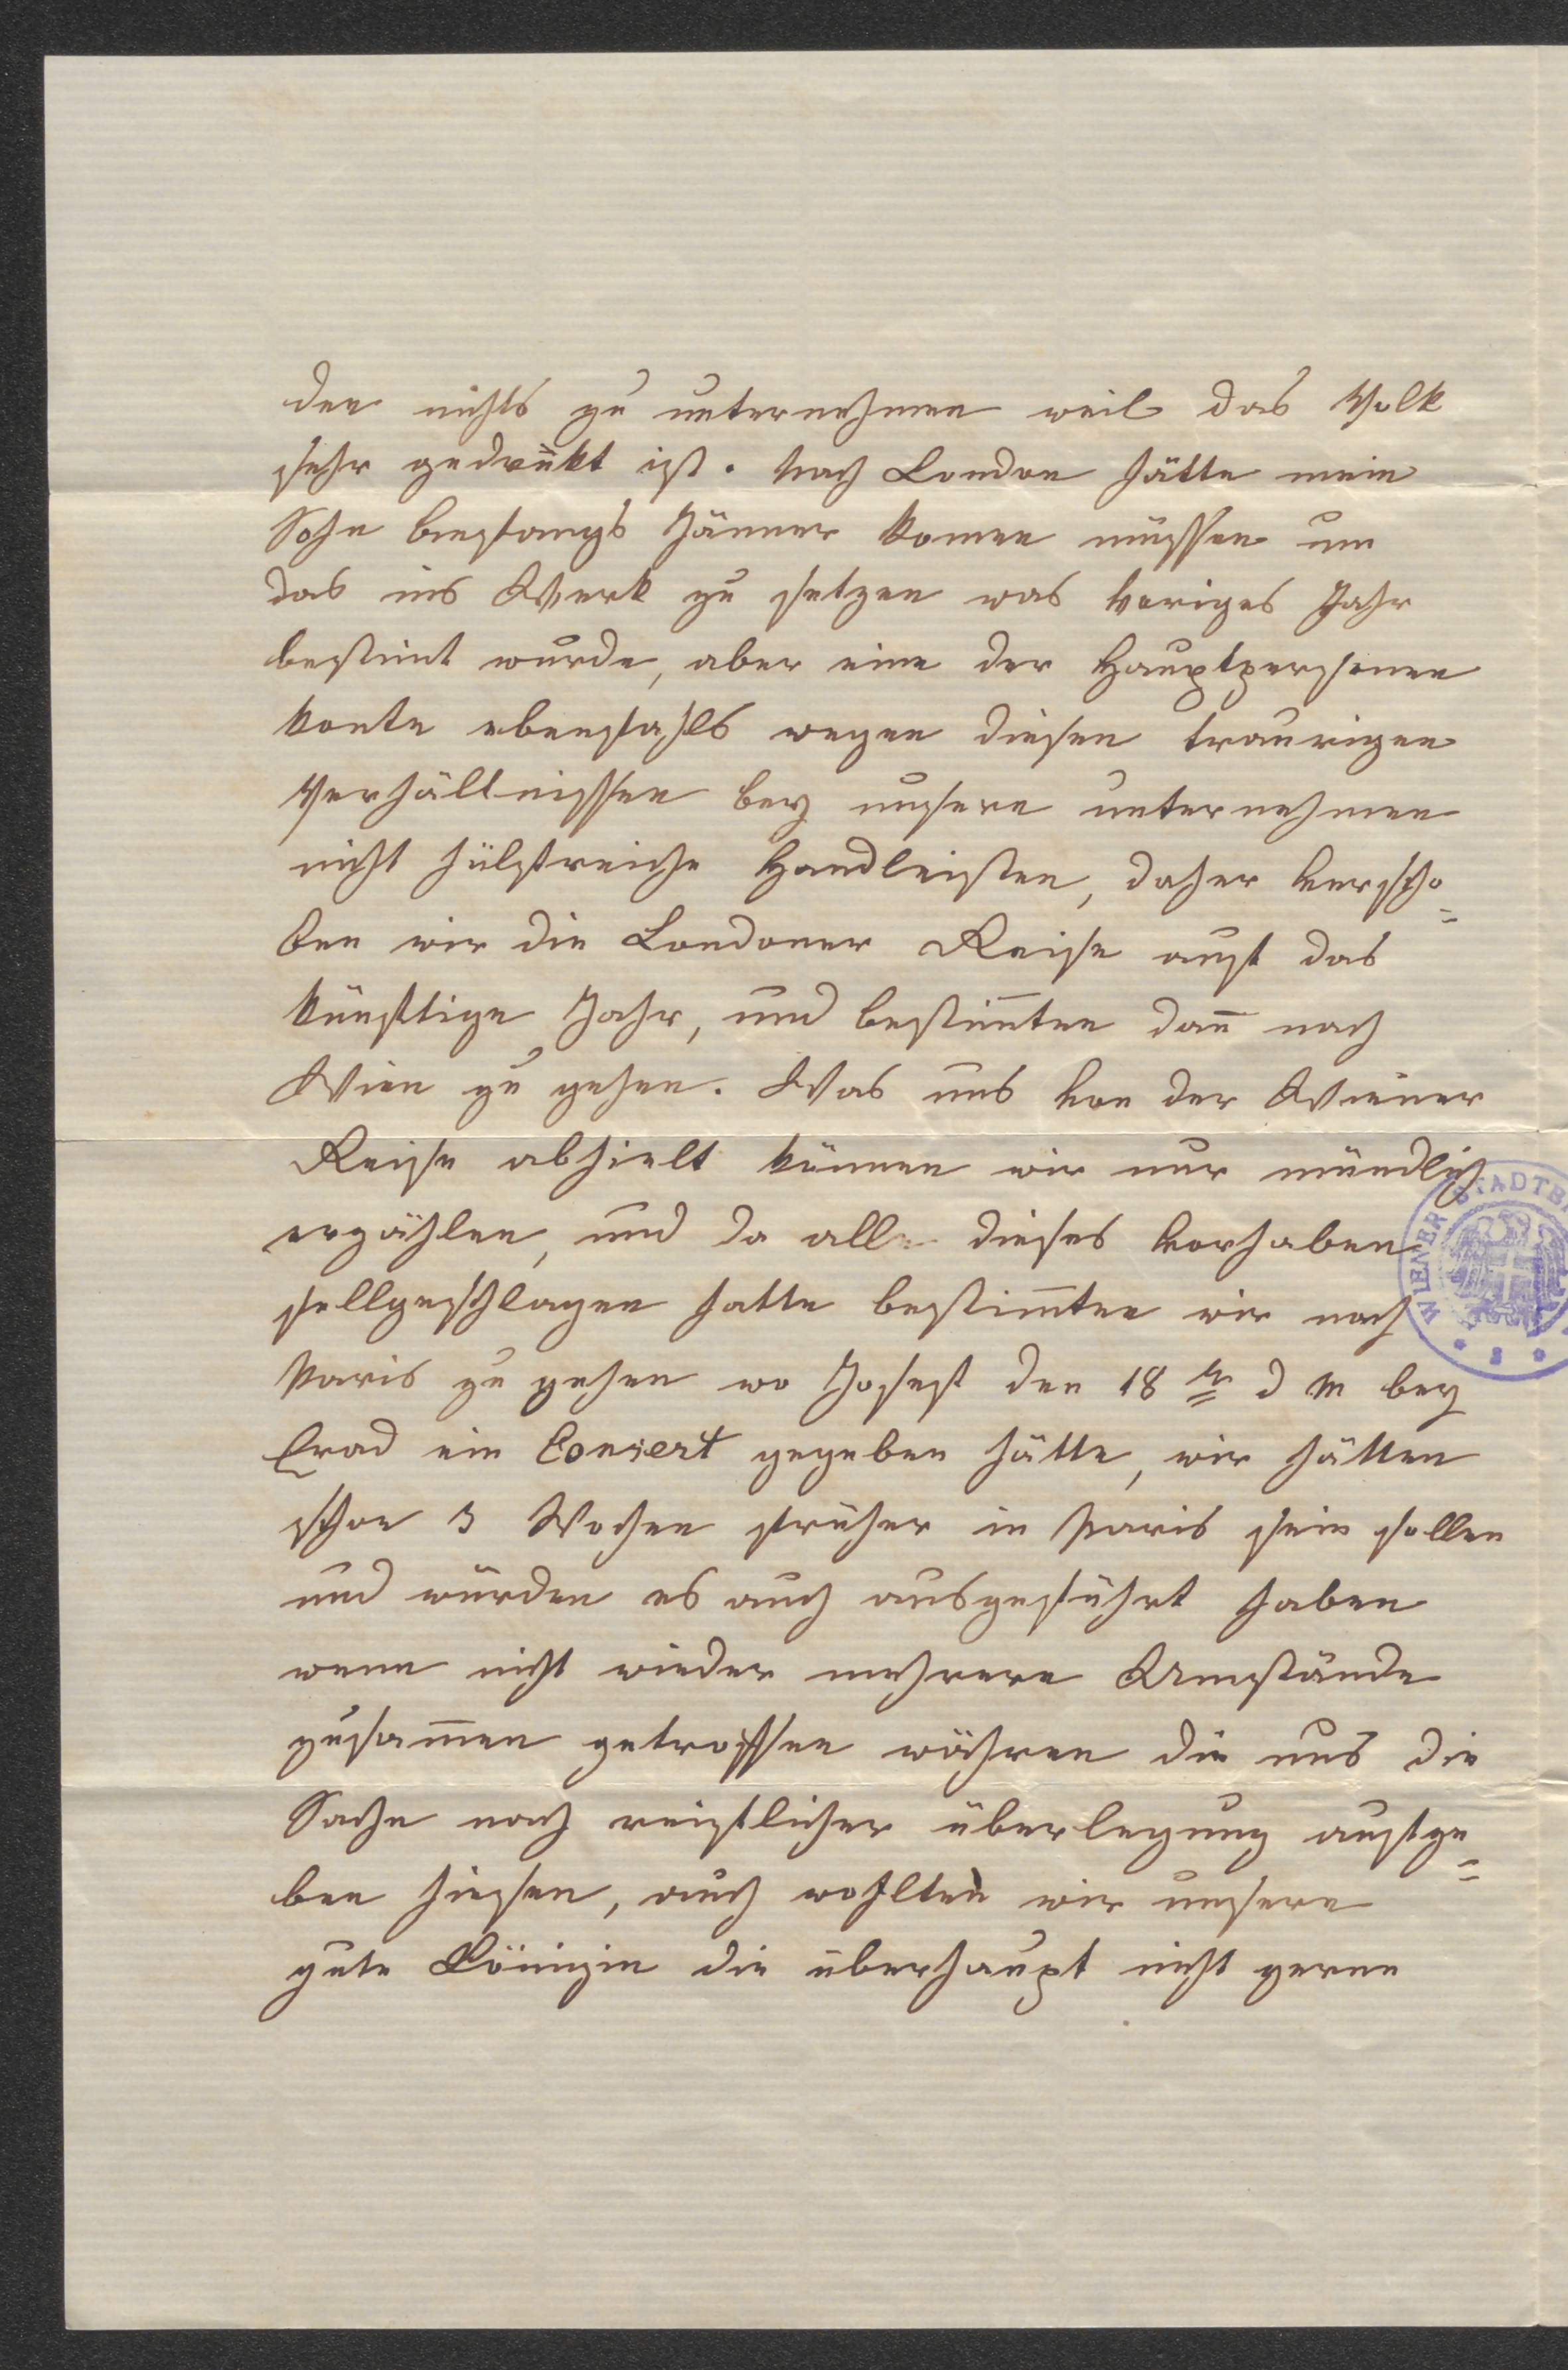 den nichts zu unternehmen weil das Volk
sehr gedrükt ist. Nach London hätte mein
Sohn anfangs Jänner komen müssen um
das ins Werk zu setzen was voriges Jahr
bestimt wurde, aber eine der Hauptpersonen
konte ebenfahls wegen diesen traurigen
Verhältnissen bey unsern unternehmen
nicht hülfreiche Handleisten, daher verscho=
ben wir die Londoner Reise auf das
künftige Jahr, und bestim̅ten dan̅ nach
Wien zu gehen. Was uns von der Wiener
Reise abhielt können wir nur mündlich
erzählen, und da alle dieses vorhaben
fellgeschlagen hatte bestim̅ten wir nach
Paris zu gehen wo Josef den 18tn d M bey
Erad ein Concert gegeben hätte, wir hätten
schon 3 Wochen früher in Paris sein sollen
und würden es auch ausgeführt haben
wenn nicht wieder mehrere Umstände
zusam̅en getroffen währen die uns die
Sache nach reiflicher überlegung aufge=
ben hiesen, auch wohlten wir unsere
gute Königin die überhaupt nicht gerne
WIENER STADTB